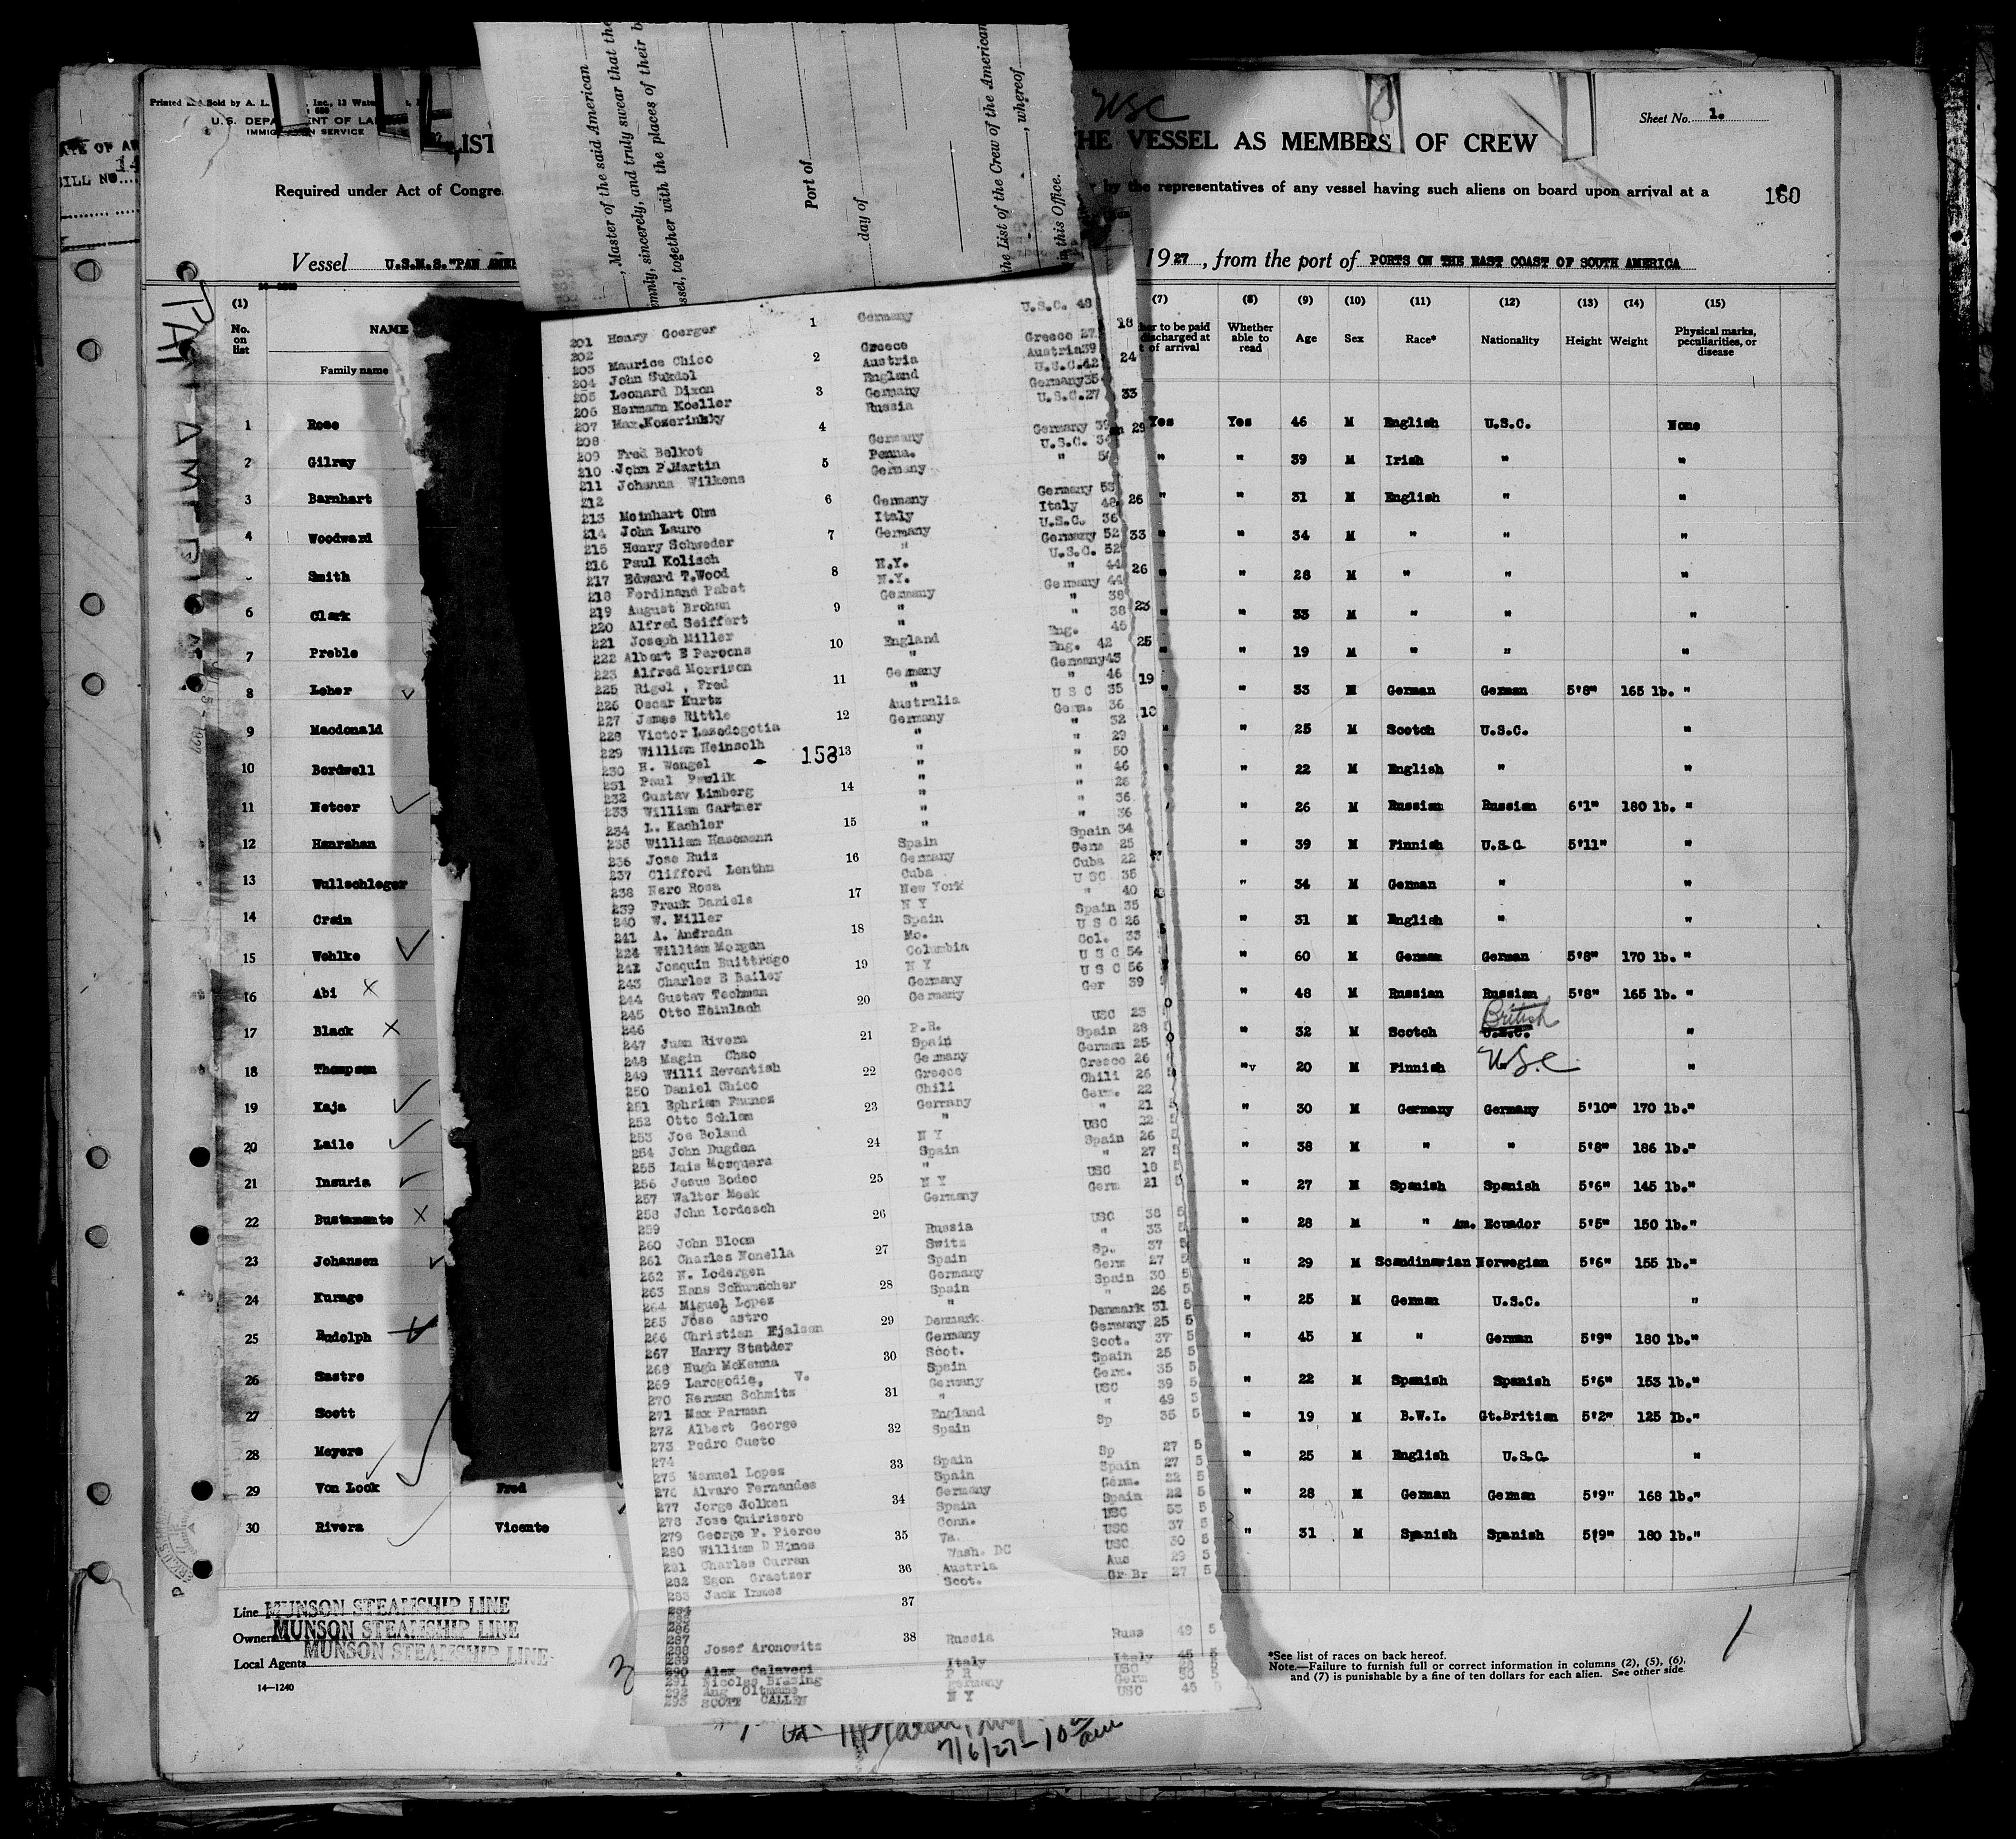 Printed and Sold by A. L. Inc., 12 Water
U.S. DEPA ENT OF LA
IMMIG N SERVICE
LIST
HE VESSEL AS MEMBERS OF CREW
USC
Sheet No. 1.
Required under Act of Congre
by the representatives of any vessel having such aliens on board upon arrival at a
160
Vessel U.S.M.S. "PAN AME
1927, from the port of PORTS ON THE EAST COAST OF SOUTH AMERICA
, Master of the said American
emnly, sincerely, and truly swear that the
ssel, together with the places of their b
Port of
day of
the List of the Crew of the American
, whereof
in this Office.
(1) (7) (8) (9) (10) (11) (12) (13) (14) (15)
No. on list NAME Family name
her to be paid discharged at t of arrival Whether able to read Age Sex Race* Nationality Height Weight Physical marks, peculiarities, or disease
1 Rose Yes Yes 46 M English U.S.C. None
2 Gilray " " 39 M Irish " "
3 Barnhart " " 31 M English " "
4 Woodward " " 34 M " " "
Smith " " 28 M " " "
6 Clark " " 33 M " " "
7 Preble " " 19 M " " "
8 Loher " " 33 M German German 5'8" 165 lb. "
9 Macdonald " " 25 M Scotch U.S.C. "
10 Bordwell " 22 M English " "
11 Netcer " 26 M Russian Russian 6'1" 180 lb. "
12 Hanrahan " 39 M Finnish U.S.C. 5'11" "
13 Wullschleger " 34 M German " "
14 Crain " 31 M English " "
15 Wohlke " 60 M German German 5'8" 170 lb. "
16 Abi " 48 M Russian Russian 5'8" 165 lb. "
17 Black " 32 M Scotch U.S.C. British "
18 Thompson " 20 M Finnish USC "
19 Kaja " 30 M Germany Germany 5'10" 170 lb."
20 Laile " 38 M " " 5'8" 186 lb."
21 Insuria " 27 M Spanish Spanish 5'6" 145 lb."
22 Bustamante " 28 M " Am. Ecuador 5'5" 150 lb."
23 Johansen " 29 M Scandinavian Norwegian 5'6" 155 lb."
24 Kurage " 25 M German U.S.C. "
25 Rudolph " 45 M " German 5'9" 180 lb."
26 Sastre " 22 M Spanish Spanish 5'6" 153 lb."
27 Scott " 19 M B.W.I. Gt.Britian 5'2" 125 lb."
28 Meyers " 25 M English U.S.C. "
29 Von Look Fred " 28 M German German 5'9" 168 lb."
30 Rivera Vicente " 31 M Spanish Spanish 5'9" 180 lb."
201 Henry Goerger 1 Germany U.S.C. 48
202
203 Maurice Chico 2 Greece Greece 27
204 John Sukdol Austria Austria 39
205 Leonard Dixon 3 England U.S.C. 42
206 Hermann Koeller Germany Germany 35
207 Max.Kozerinsky 4 Russia U.S.C. 27
208
209 Fred Belkot Germany Germany 39
210 John P.Martin 5 Penna. U.S.C.
211 Johanna Wilkens Germany "
212
213 Meinhart Ohm 6 Germany Germany 53
214 John Lauro Italy Italy 48
215 Henry Schweder 7 Germany U.S.C. 36
216 Paul Kolisch " Germany 52
217 Edward T.Wood 8 N.Y. U.S.C. 52
218 Ferdinand Pabst N.Y. " 44
219 August Brohan 9 Germany Germany 44
220 Alfred Seiffert " " 38
221 Joseph Miller " " 38
222 Albert E Parsons 10 England Eng. 45
223 Alfred Morrison " Eng. 42
225 Rigel, Fred 11 Germany Germany 43
226 Oscar Kurtz " " 46
227 James Rittle 12 Australia U S C 35
228 Victor Lasedogotia Germany Germ. 36
229 William Heinsolh 13 " " 32
230 H. Wengel 158 " " 29
231 Paul Pawlik " " 50
232 Gustav Limberg 14 " " 46
233 William Gartner " " 26
234 L. Kachler 15 " " 36
235 William Hasemann " " 36
236 Jose Ruiz Spain Spain 34
237 Clifford Lenthn 16 Germany Germ 25
238 Nero Rosa Cuba Cuba 22
239 Frank Daniels 17 New York U SC 35
240 W. Miller N Y " 40
241 A. Andrada Spain Spain 35
224 William Morgan 18 Mo. U S C 26
242 Joaquin Buittrago Columbia Col. 33
243 Charles E Bailey 19 N Y U S C 54
244 Gustav Techman Germany U S C 56
245 Otto Heinlach 20 Germany Ger 39
246
247 Juan Rivera 21 P.R. USC 23
248 Magin Chao Spain Spain 28
249 Willi Reventish Germany German 25
250 Daniel Chico 22 Greece Greece 26
251 Ephriam Faunez Chili Chili 26
252 Otto Schlam 23 Germany Germ. 22
253 Joe Boland " " 21
254 John Dugdan 24 N Y USC 22
255 Luis Mosquera Spain Spain 26
256 Jesus Bodeo 25 " " 27
257 Walter Mesk N Y USC 18
258 John Lordesch Germany Germ 21
259 26
260 John Bloom Russia USC 38
261 Charles Nonella 27 Switz " 33
262 N. Lodergen Spain Sp. 37
263 Hans Schumacher Germany Germ 27
264 Miguel Lopez 28 Spain Spain 30
265 Jose astro " " 26
266 Christian Hjalsen 29 Denmark Denmark 31
267 Harry Statder Germany Germany 25
268 Hugh McKenna 30 Scot. Scot. 37
269 Larogodie, V. Spain Spain 25
270 Herman Schmitz 31 Germany Germ. 35
271 Max Parman " USC 39
272 Albert George England " 49
273 Pedro Cueto 32 Spain Sp 35
274
275 Manuel Lopez 33 Spain Sp 27
276 Alvaro Fernandes Spain Spain 27
277 Jorge Jolken 34 Germany Germ. 22
278 Jose Quirisero Spain Spain 22
279 George F. Pierce 35 Conn. USC 53
280 William D Himes Va. USC 37
281 Charles Curran Wash. DC USC 30
282 Egon Graetzer 36 Austria Aus 29
283 Jack Innes Scot. Gr Br 27
37
286
287
288 Josef Aronowitz 38 Russia Russ 49
289
290 Alex Calaveci Italy Italy 45
291 Nicolas P R USC
292 Aug Oltmann Germany Germ
293 SCOTT CALLEN N Y USC 45
Line MUNSON STEAMSHIP LINE
Owners MUNSON STEAMSHIP LINE
Local Agents MUNSON STEAMSHIP LINE
14—1240
*See list of races on back hereof.
Note.—Failure to furnish full or correct information in columns (2), (5), (6),
and (7) is punishable by a fine of ten dollars for each alien. See other side.
7/6/27-10 am